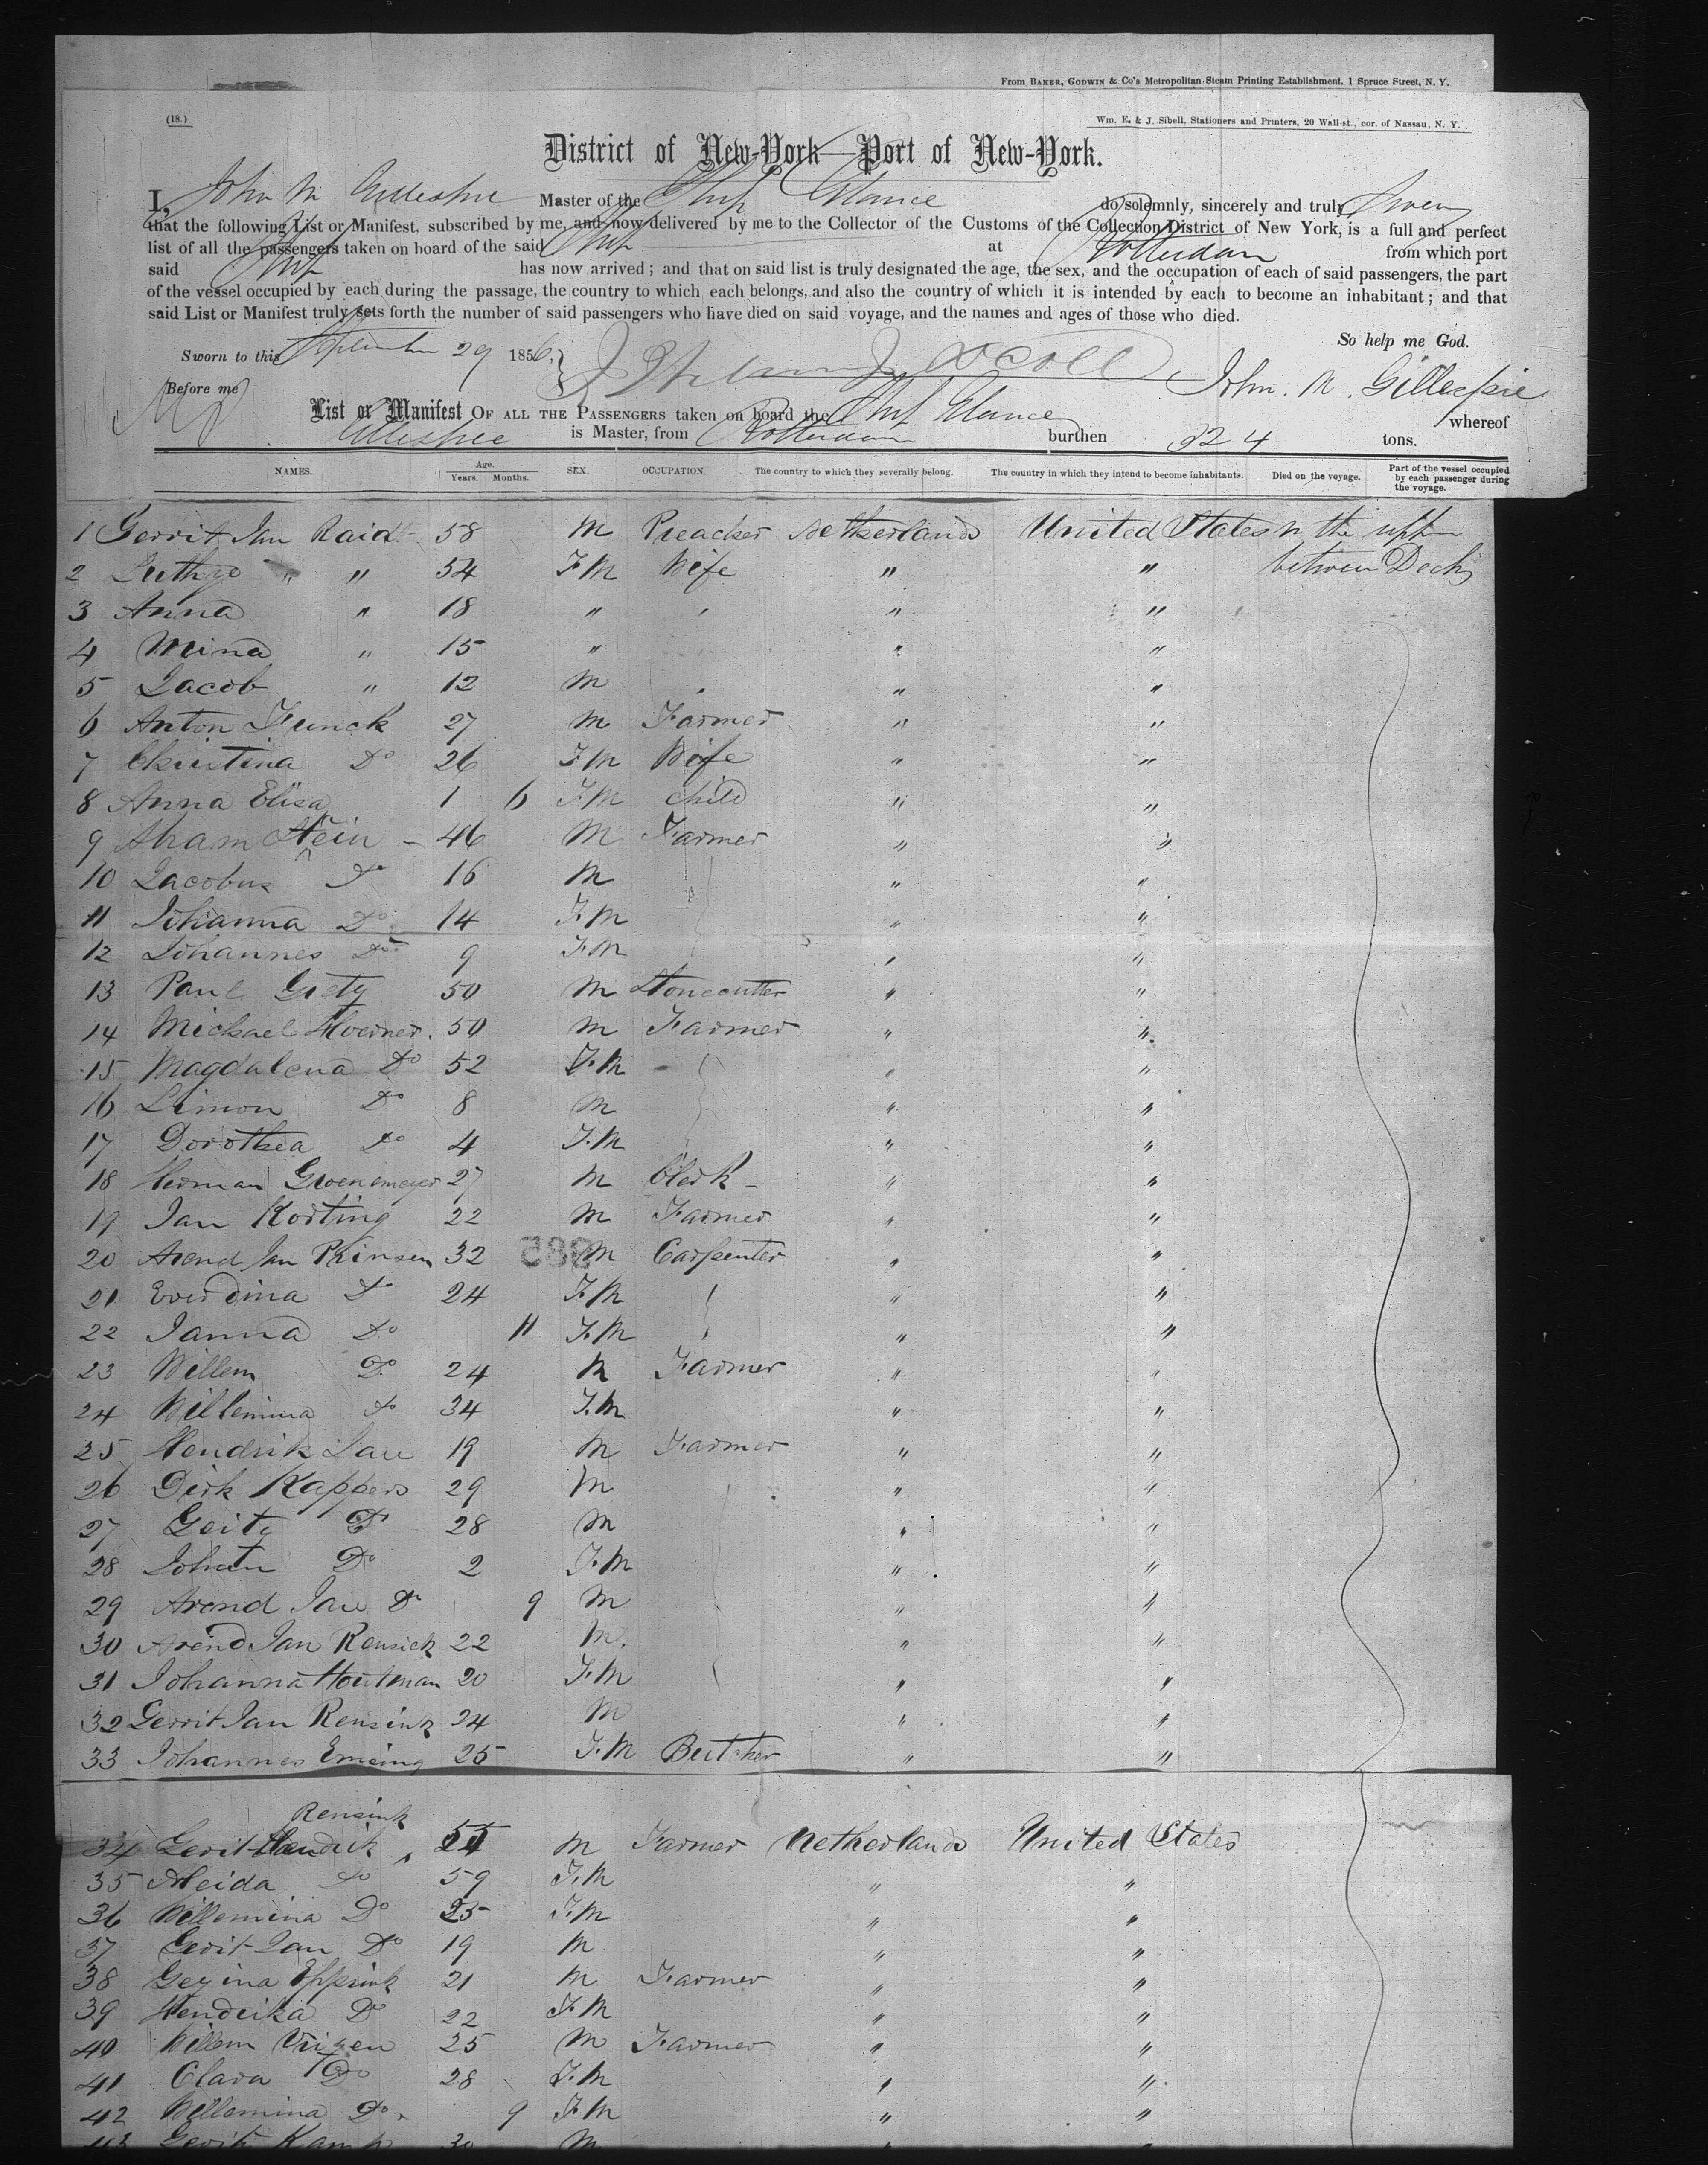 From BAKER, GODWIN & Co's Metropolitan Steam Printing Establishment, 1 Spruce Street, N. Y.
(18.)
Wm. E. & J. Sibell, Stationers and Printers, 20 Wall-st., cor. of Nassau, N. Y.
District of New-York—Port of New-York.
I, John M Gillespie Master of the Ship Glance do solemnly, sincerely and truly Swear
that the following List or Manifest, subscribed by me, and now delivered by me to the Collector of the Customs of the Collection District of New York, is a full and perfect
list of all the passengers taken on board of the said Ship at Rotterdam from which port
said Ship has now arrived; and that on said list is truly designated the age, the sex, and the occupation of each of said passengers, the part
of the vessel occupied by each during the passage, the country to which each belongs, and also the country of which it is intended by each to become an inhabitant; and that
said List or Manifest truly sets forth the number of said passengers who have died on said voyage, and the names and ages of those who died.
So help me God.
Sworn to this September 29 1856,
John. M. Gillespie
Before me
List or Manifest OF ALL THE PASSENGERS taken on board the Ship Glance whereof
Gillespie is Master, from Rotterdam burthen tons.
NAMES. Age. Years. Months. SEX. OCCUPATION. The country to which they severally belong. The country in which they intend to become inhabitants. Died on the voyage. Part of the vessel occupied by each passenger during the voyage.
1 Gerrit Jan Raidt 58 M Preacher Netherlands United States In the upper
2 " " 54 F M Wife " " between Decks
3 Anna " 18 " " " "
4 Mina " 15 " " "
5 Jacob " 12 M " " "
6 Anton Funck 27 M Farmer " "
7 Christina Do 26 F M Wife " "
8 Anna Elisa 1 6 F M Child " "
9 Abram Stein - 46 M Farmer " "
10 Jacobus Do 16 M " "
11 Johanna Do 14 F M " "
12 Johannes Do 9 F M " "
13 Paul 50 M Stonecutter " "
14 Michael 50 M Farmer " "
15 Magdalena Do 52 F M " "
16 Simon Do 8 M " "
17 Dorothea Do 4 F. M " "
18 Herman Groenemeyer 27 M Clerk - " "
19 Jan Korting 22 M Farmer " "
20 Arend Jan Prinsen 32 M Carpenter " "
21 Everdina Do 24 F. M " "
22 Janna Do 11 F. M " "
23 Willem Do 24 M Farmer " "
24 Willemina Do 34 F. M " "
25 Hendrik Jan 19 M Farmer " "
26 Dirk Kappers 29 M " "
27 Do 28 M " "
28 Do 2 F. M " "
29 Arend Jan Do 9 M " "
30 Arend Jan Rensick 22 M. " "
31 Johanna Houtman 20 F. M " "
32 Gerrit Jan Rensink 24 M " "
33 Johannes Emeing 25 F. M Butcher " "
Rensink
34 Gerit Hendrik M Farmer Netherlands United States
35 Aleida Do 59 F. M " "
36 Willemina Do 25 F. M " "
37 Gerit Jan Do 19 M " "
38 Gezina Eppink 21 M Farmer " "
39 Hendrika Do 22 F. M " "
40 Willem 25 M Farmer " "
41 Clara Do 28 F. M " "
42 Willemina Do. 9 F M " "
43 Gerit Kamp 30 M